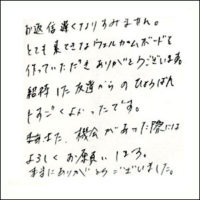 お返信遅くなりすみません。
とても素てきなウェルカムボードを
作っていただきありがとうございます。
招待した友達からのひょうばん
もすごくよかったです。
また、機会があった際には
よろしくお願い致します。
本当にありがとうございました。